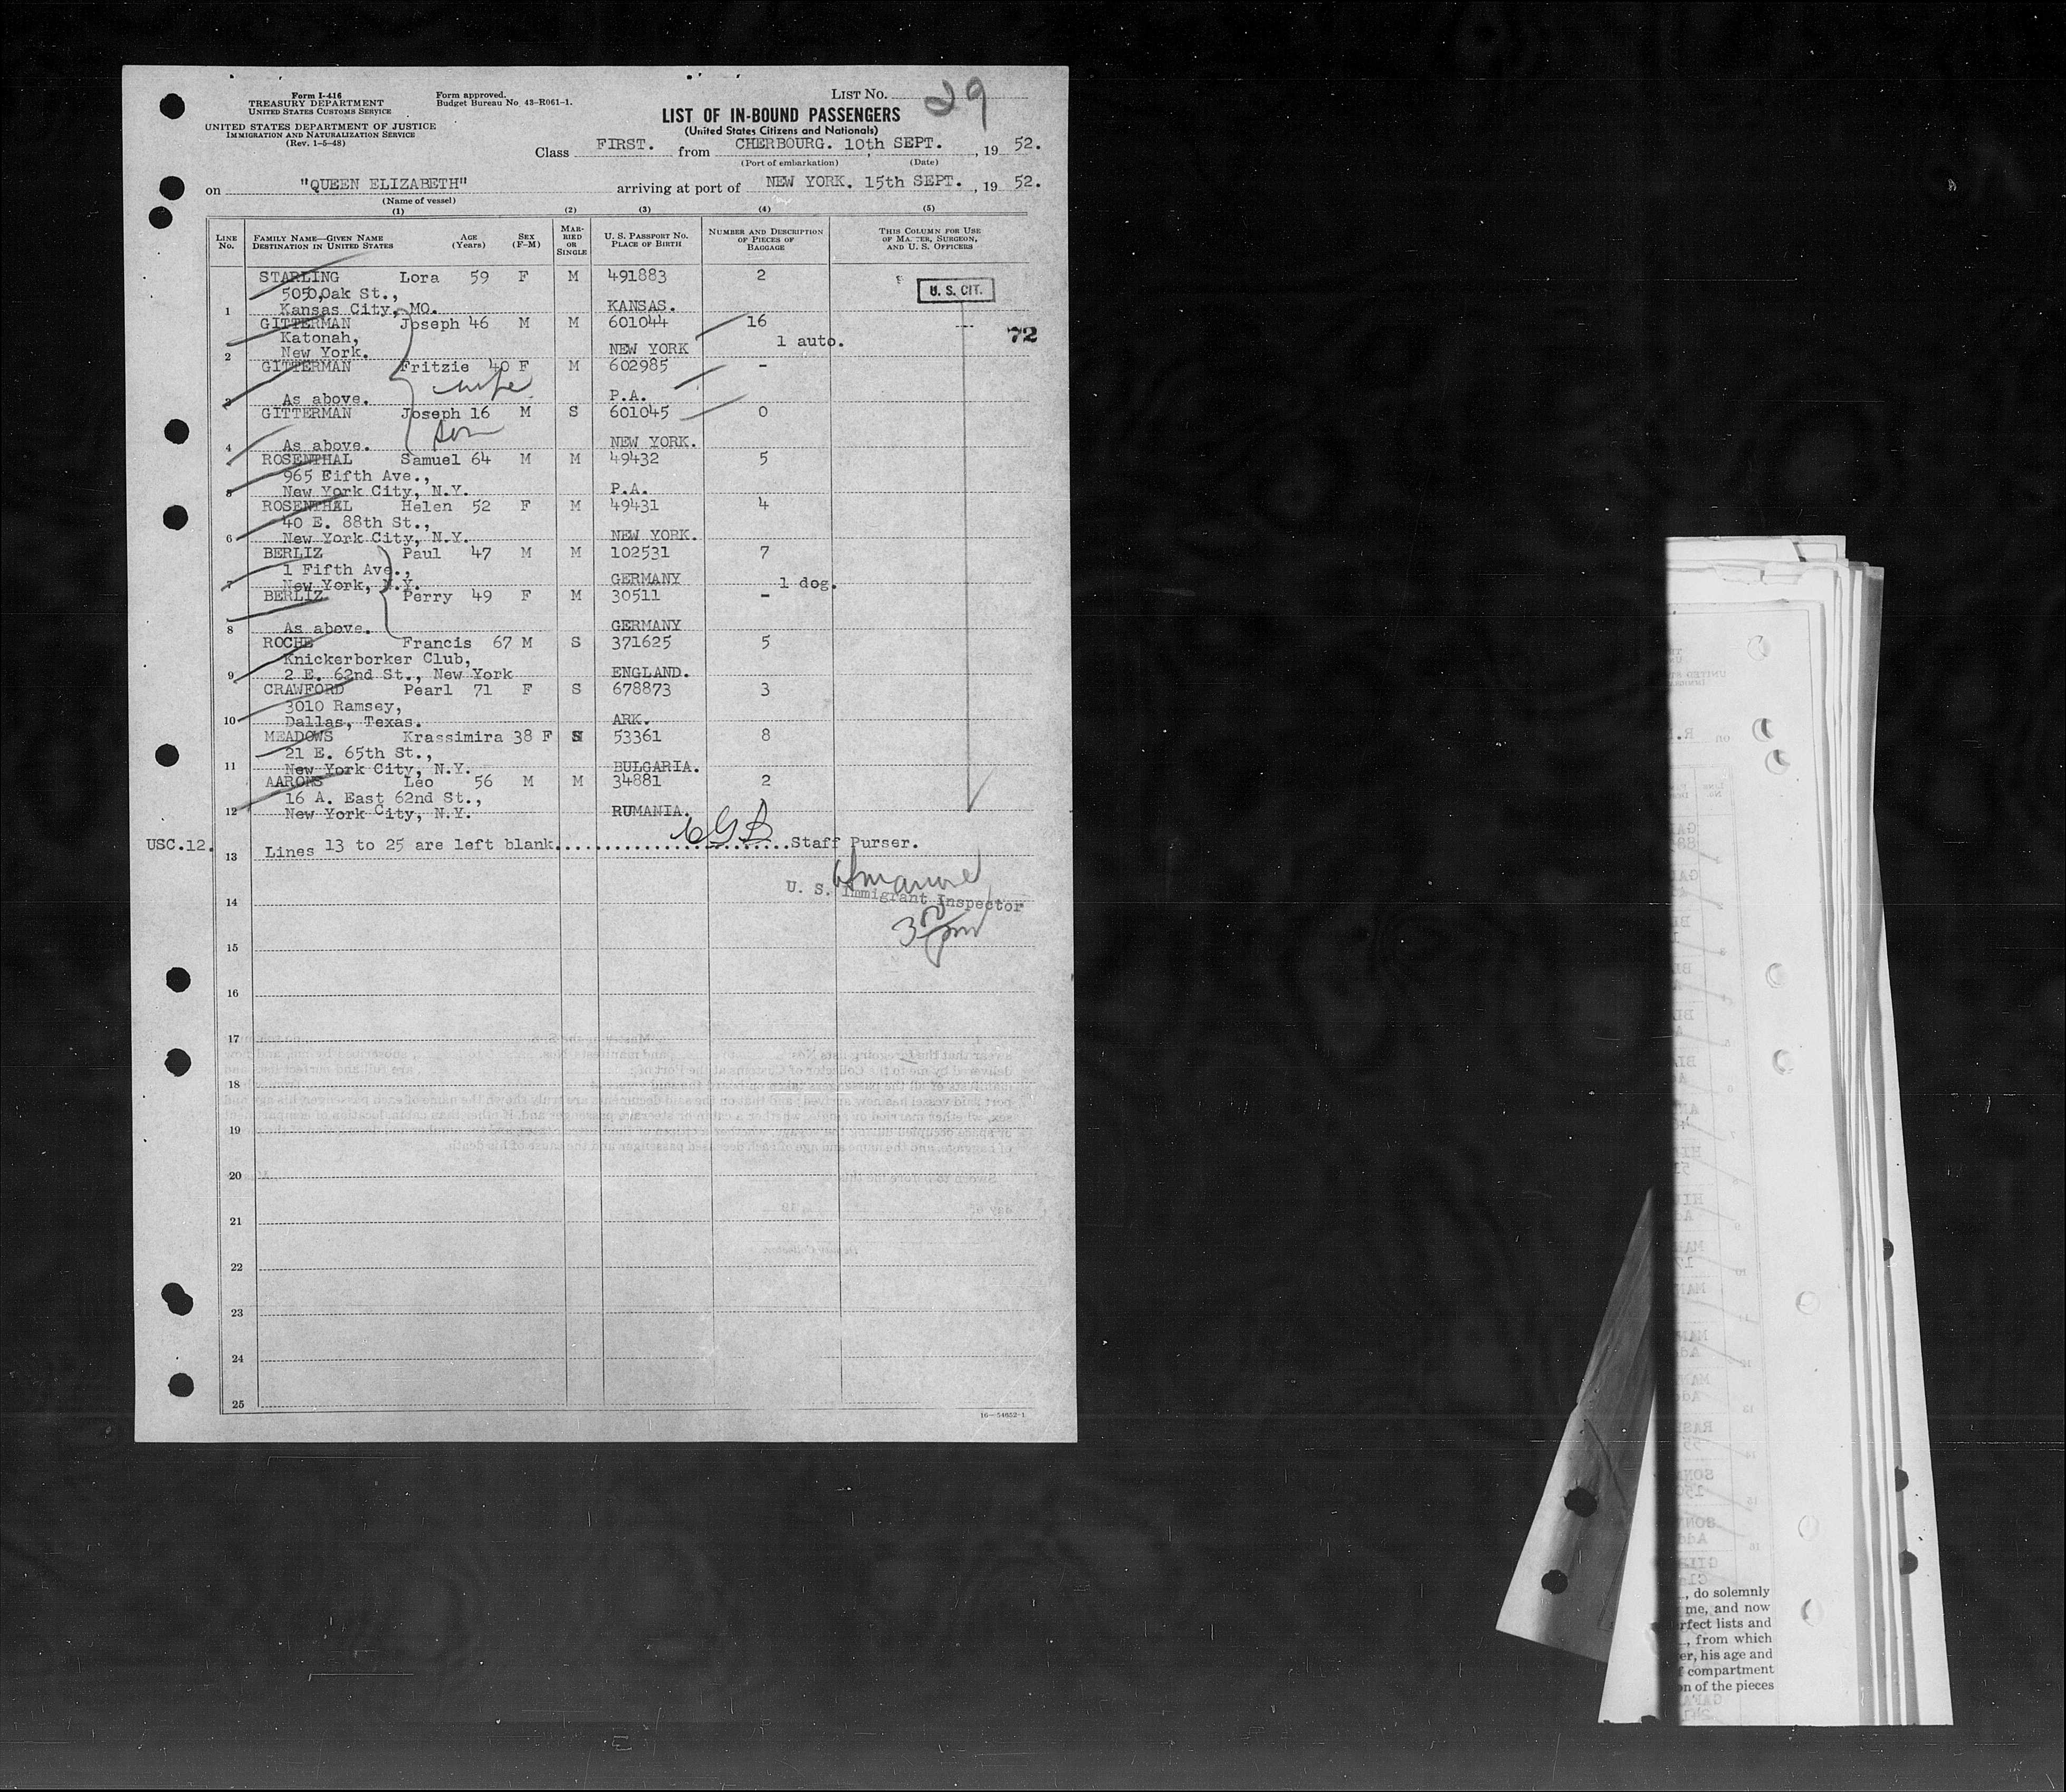 Form I-416
TREASURY DEPARTMENT
UNITED STATES CUSTOMS SERVICE
UNITED STATES DEPARTMENT OF JUSTICE
IMMIGRATION AND NATURALIZATION SERVICE
(Rev. 1-5-48)
Form approved.
Budget Bureau No. 43-R061-1.
LIST NO. 29
LIST OF IN-BOUND PASSENGERS
(United States Citizens and Nationals)
Class FIRST. from CHERBOURG. 10th SEPT. , 19 52.
(Port of embarkation) (Date)
on "QUEEN ELIZABETH" arriving at port of NEW YORK. 15th SEPT. , 19 52.
(Name of vessel)
(1) (2) (3) (4) (5)
LINE No. FAMILY NAME—GIVEN NAME DESTINATION IN UNITED STATES AGE (Years) SEX (F-M) MARRIED OR SINGLE U. S. PASSPORT NO. PLACE OF BIRTH NUMBER AND DESCRIPTION OF PIECES OF BAGGAGE THIS COLUMN FOR USE OF MASTER, SURGEON, AND U. S. OFFICERS
STARLING Lora 59 F M 491883 2
5050,Oak St., U. S. CIT.
1 Kansas City, MO. KANSAS.
GITTERMAN Joseph 46 M M 601044 16
Katonah, 1 auto. 72
2 New York. NEW YORK
GITTERMAN Fritzie 40 F M 602985 -
wife
3 As above. P.A.
GITTERMAN Joseph 16 M S 601045 0
son
4 As above. NEW YORK.
ROSENTHAL Samuel 64 M M 49432 5
965 Fifth Ave.,
5 New York City, N.Y. P.A.
ROSENTHAL Helen 52 F M 49431 4
40 E. 88th St.,
6 New York City, N.Y. NEW YORK.
BERLIZ Paul 47 M M 102531 7
1 Fifth Ave.,
7 New York, N.Y. GERMANY 1 dog.
BERLIZ Perry 49 F M 30511 -
8 As above. GERMANY
ROCHE Francis 67 M S 371625 5
Knickerborker Club,
9 2 E. 62nd St., New York ENGLAND.
CRAWFORD Pearl 71 F S 678873 3
3010 Ramsey,
10 Dallas, Texas. ARK.
MEADOWS Krassimira 38 F S 53361 8
21 E. 65th St.,
11 New York City, N.Y. BULGARIA.
AARONS Leo 56 M M 34881 2
16 A. East 62nd St.,
12 New York City, N.Y. RUMANIA.
USC.12. Lines 13 to 25 are left blank..............................Staff Purser.
13
U. S. Immigrant Inspector
14
3 pm
15
16
17
18
19
20
21
22
23
24
25
16—54652-1
, do solemnly
me, and now
rfect lists and
, from which
er, his age and
compartment
on of the pieces